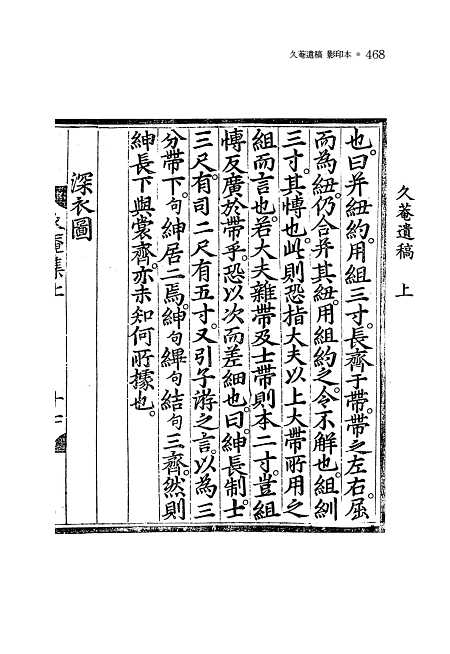 久菴遺稿 影印本 ● 468
久菴遺稿 上
也。曰并紐約。用組三寸。長齊于帶。帶之左右。屈
而為紐。仍合并其紐。用組約之。令不解也。組紃
三寸。其慱也。此則恐指大夫以上大帶所用之
組而言也。若大夫雜帶及士帶則本二寸。豈組
慱反廣於帶乎。恐以次而差細也。曰紳長制。士
三尺。有司二尺有五寸。又引子游之言。以為三
分帶下。句紳居二焉。紳句韠句結句三齊。然則
紳長下與裳齊。亦未知何所據也。
深衣圖
久菴集上
十七